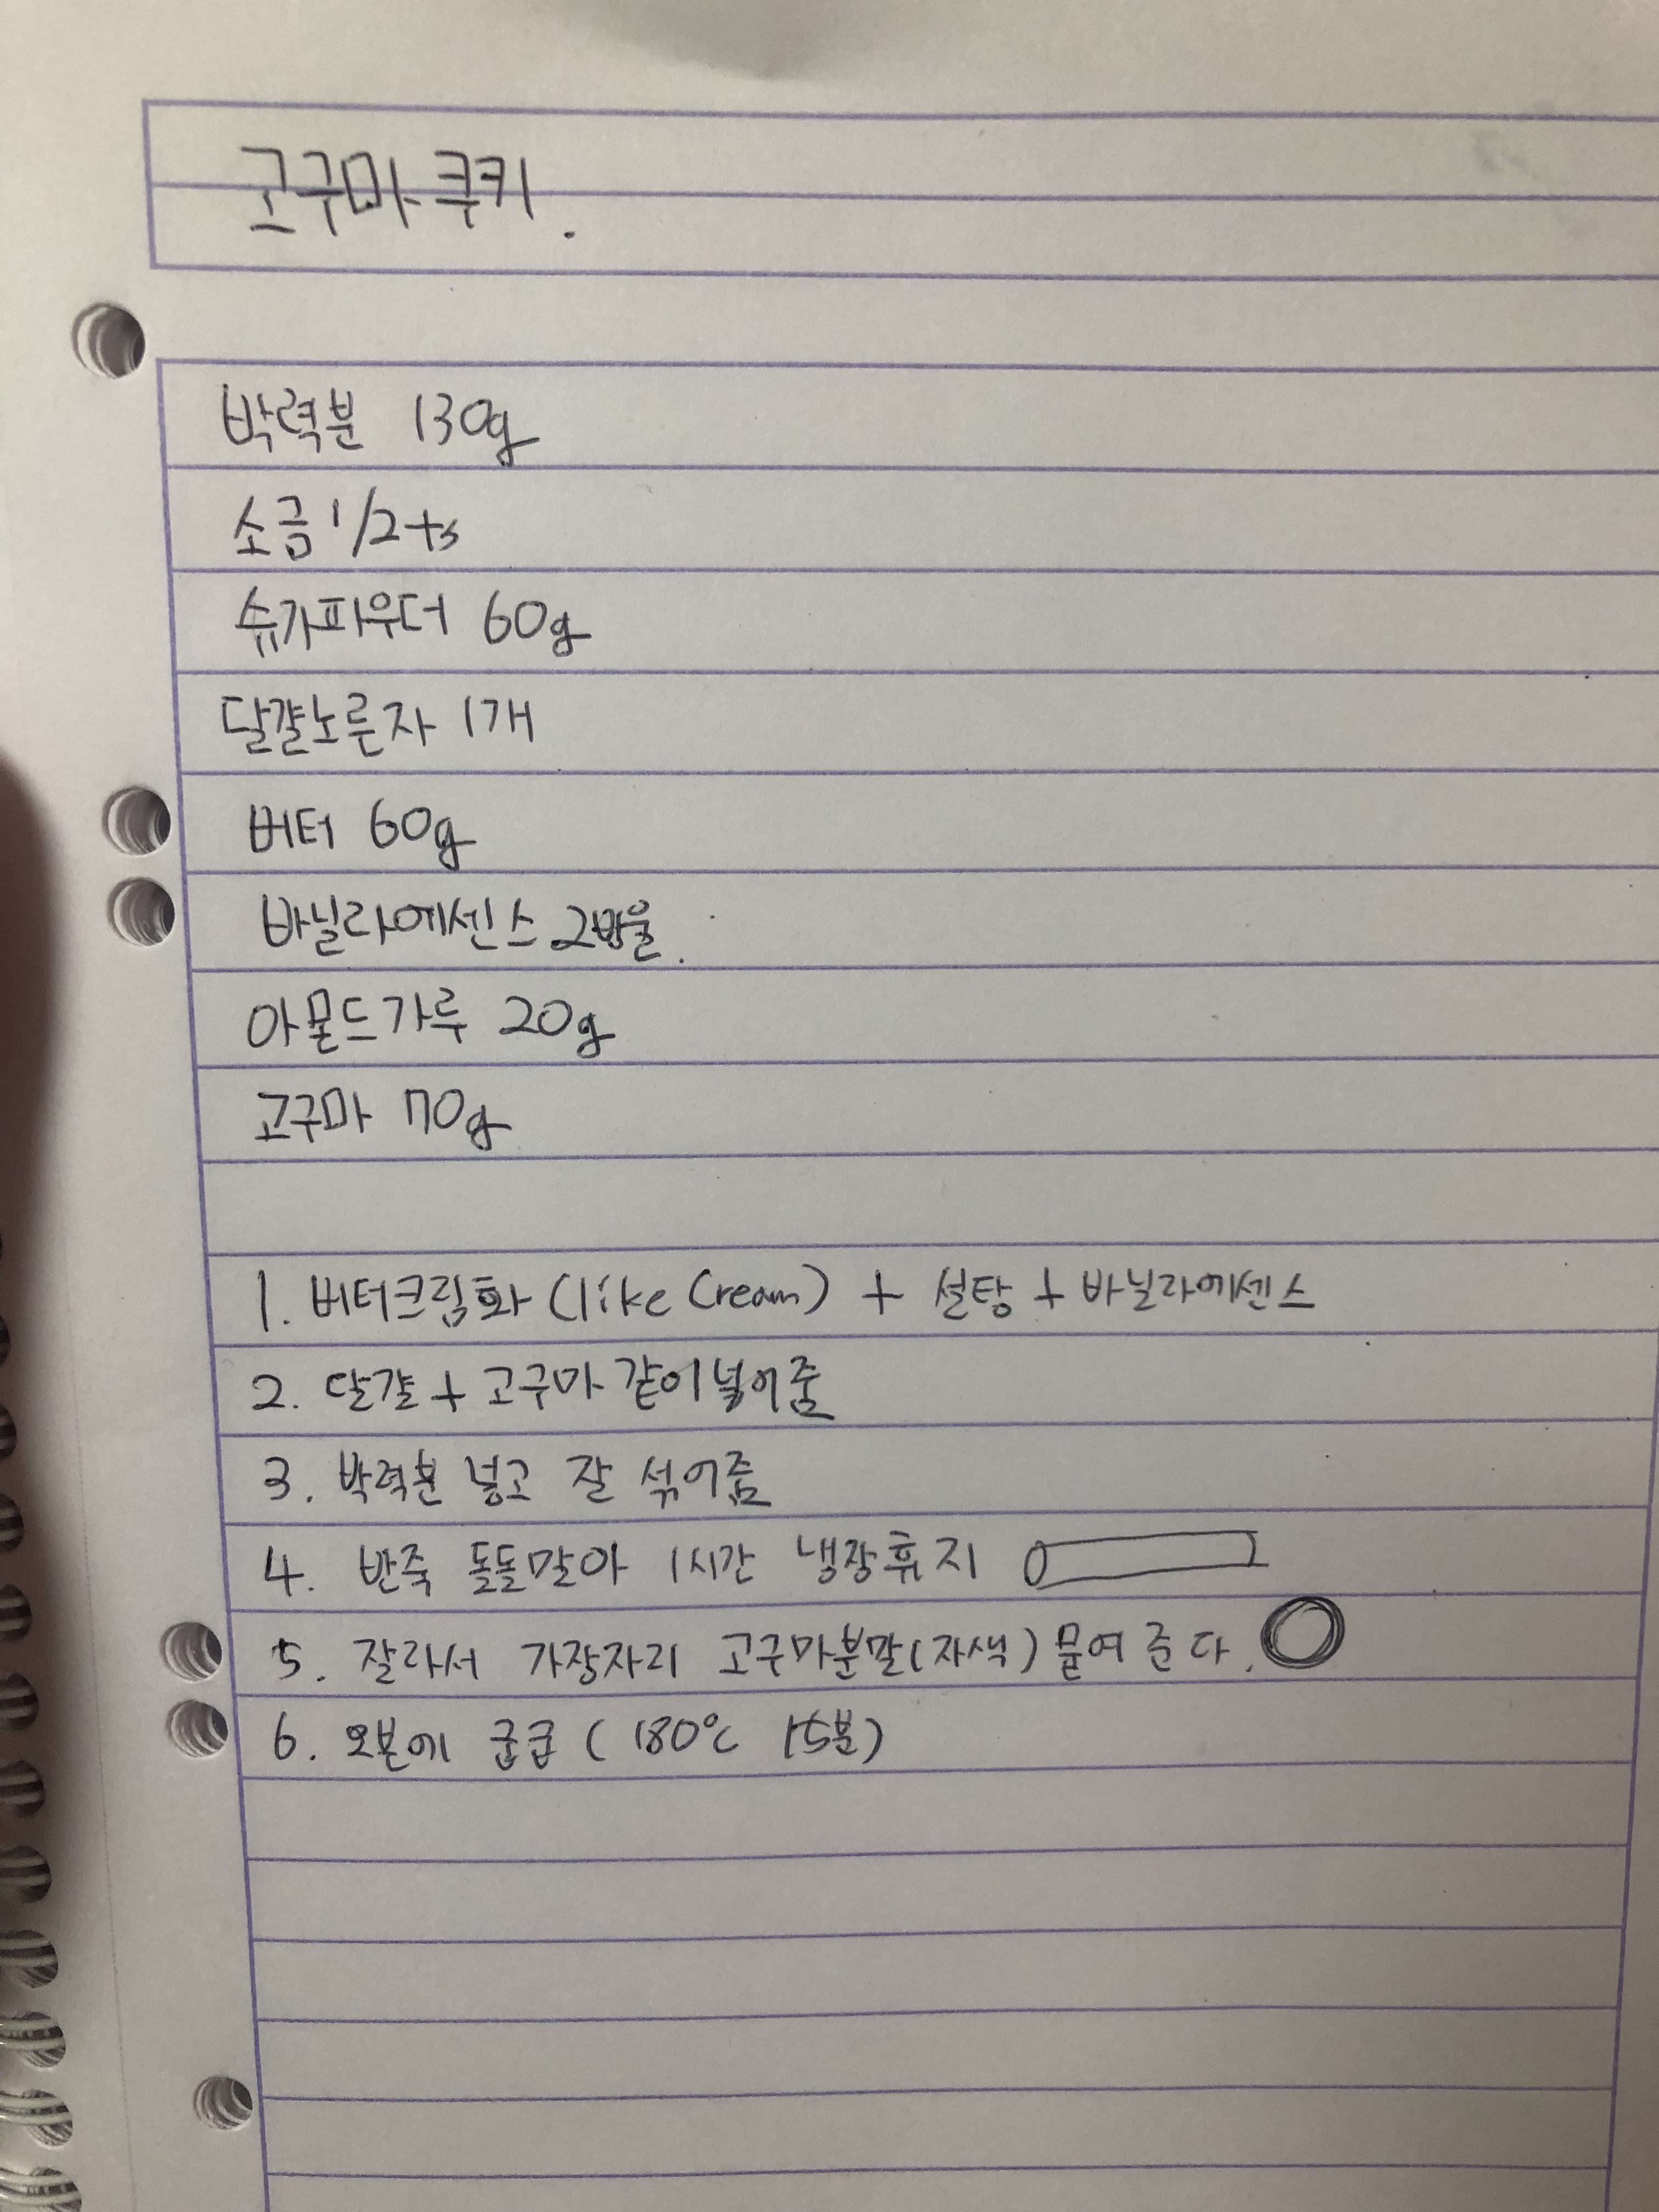 고구마쿠키.
박력분 130g
소금 1/2ts
슈가파우더 60g
달걀노른자 1개
버터 60g
바닐라에센스 2방울.
아몬드가루 20g
고구마 70g
1. 버터크림화 (like Cream) + 설탕 + 바닐라에센스
2. 달걀 + 고구마 같이 넣어줌
3. 박력분 넣고 잘 섞어줌
4. 반죽 돌돌말아 1시간 냉장휴지
5. 잘라서 가장자리 고구마분말(자색) 묻여준다.
6. 오븐에 굽굽 (180℃ 15분)